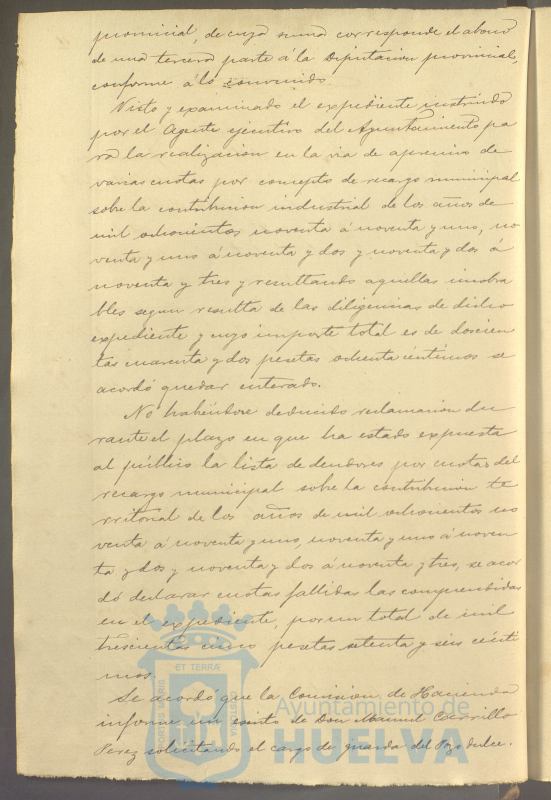 provincial, de cuya suma corresponde el abono
de una tercera parte á la Diputacion provincial,
conforme á lo convenido.
Visto y examinado el expediente instruido
por el Agente ejecutivo del Ayuntamiento pa
ra la realizacion en la via de apremio de
varias cuotas por concepto de recargo municipal
sobre la contribucion industrial de los años de
mil ochocientos noventa á noventa y uno, no
venta y uno á noventa y dos y noventa y dos á
noventa y tres y resultando aquellas incobra
bles segun resulta de las diligencias de dicho
expediente y cuyo importe total es de doscien
tas cuarenta y dos pesetas ochenta céntimos se
acordó quedar enterado.
No habiéndose deducido reclamacion du
rante el plazo en que ha estado expuesta
al público la lista de deudores por cuotas del
recargo municipal sobre la contribucion te
rritorial de los años de mil ochocientos no
venta á noventa y uno, noventa y uno á noven
ta y dos y noventa y dos á noventa y tres, se acor
dó declarar cuotas fallidas las comprendidas
en el expediente, por un total de mil
trescientas cinco pesetas setenta y seis cénti
mos.
Se acordó que la Comision de Hacienda
informe un escrito de Don Manuel Carrillo
Perez solicitando el cargo de guarda del Pozo dulce.
ET TERRÆ
PORTUS MARIS
CUSTODIA
Ayuntamiento de
HUELVA